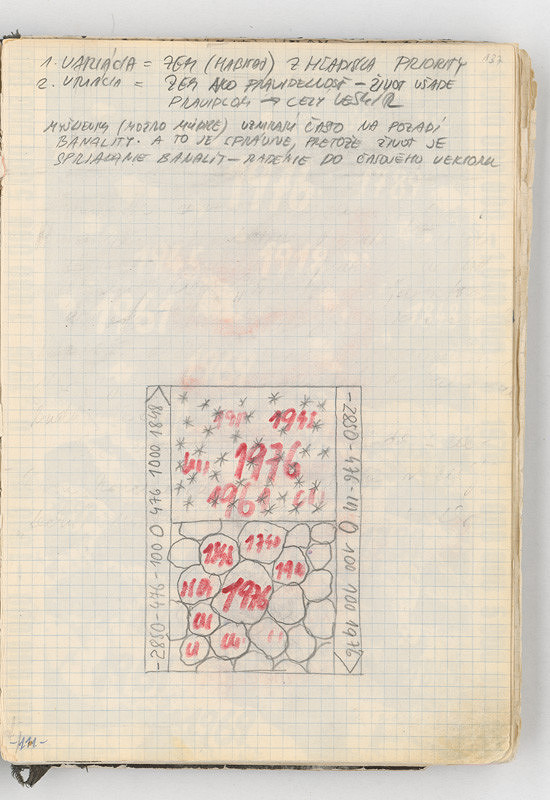 137
1. VARIÁCIA = ZEM (HABITAD) Z HĽADISKA PRIORITY
2. VARIÁCIA = ZEM AKO PRAVIDELNOSŤ - ŽIVOT VŠADE
PRAVIDLOM → CELÝ VESMÍR
MYŠLIENKY (MOŽNO MÚDRE) VZNIKAJÚ ČASTO NA POZADÍ
BANALITY. A TO JE SPRÁVNE, PRETOŽE ŽIVOT JE
SPRIADANIE BANALÍT - RADENIE DO ČASOVÉHO VEKTORU
-2850-476-100 0 476 1000 1848
1948
1976
196
1848
1740
194
1976
-2850-476-111 0 100 700 1976
-111-